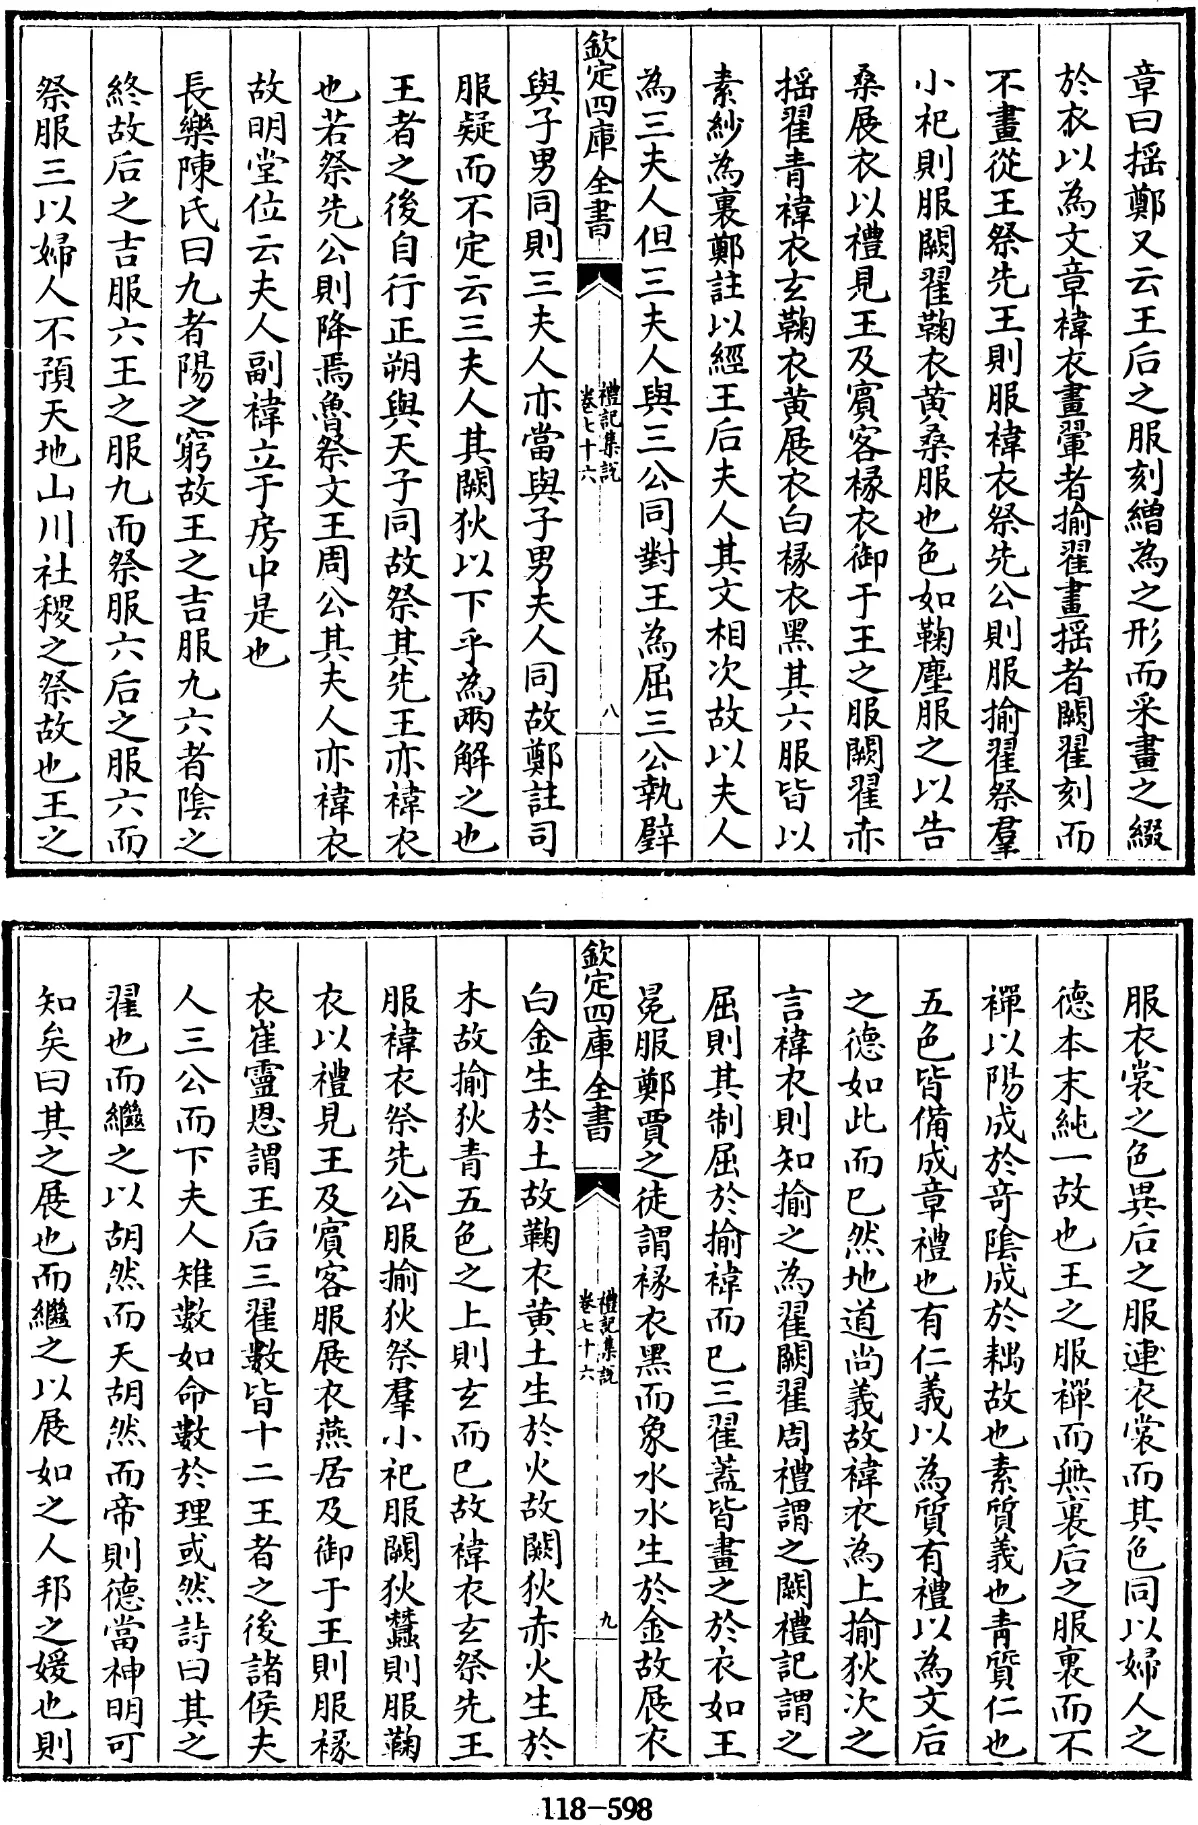 章曰揺鄭又云王后之服刻繒為之形而采畫之綴
於衣以為文章褘衣畫翬者揄翟畫揺者闕翟刻而
不畫從王祭先王則服褘衣祭先公則服揄翟祭羣
小祀則服闕翟鞠衣黄桑服也色如鞠塵服之以告
桑展衣以禮見王及賓客褖衣御于王之服闕翟赤
揺翟青褘衣玄鞠衣黄展衣白褖衣黑其六服皆以
素紗為裏鄭註以經王后夫人其文相次故以夫人
為三夫人但三夫人與三公同對王為屈三公執璧
欽定四庫全書
禮記集説
卷七十六
八
與子男同則三夫人亦當與子男夫人同故鄭註司
服疑而不定云三夫人其闕狄以下乎為兩解之也
王者之後自行正朔與天子同故祭其先王亦褘衣
也若祭先公則降焉魯祭文王周公其夫人亦褘衣
故明堂位云夫人副褘立于房中是也
長樂陳氏曰九者陽之窮故王之吉服九六者陰之
終故后之吉服六王之服九而祭服六后之服六而
祭服三以婦人不預天地山川社稷之祭故也王之
服衣裳之色異后之服連衣裳而其色同以婦人之
德本末純一故也王之服襌而無裏后之服裏而不
襌以陽成於竒陰成於耦故也素質義也青質仁也
五色皆備成章禮也有仁義以為質有禮以為文后
之德如此而已然地道尚義故褘衣為上揄狄次之
言褘衣則知揄之為翟闕翟周禮謂之闕禮記謂之
屈則其制屈於揄褘而已三翟蓋皆畫之於衣如王
冕服鄭賈之徒謂褖衣黑而象水水生於金故展衣
欽定四庫全書
禮記集説
卷七十六
九
白金生於土故鞠衣黄土生於火故闕狄赤火生於
木故揄狄青五色之上則玄而已故褘衣玄祭先王
服褘衣祭先公服揄狄祭羣小祀服闕狄蠶則服鞠
衣以禮見王及賓客服展衣燕居及御于王則服褖
衣崔靈恩謂王后三翟數皆十二王者之後諸侯夫
人三公而下夫人雉數如命數於理或然詩曰其之
翟也而繼之以胡然而天胡然而帝則德當神明可
知矣曰其之展也而繼之以展如之人邦之媛也則
118-598